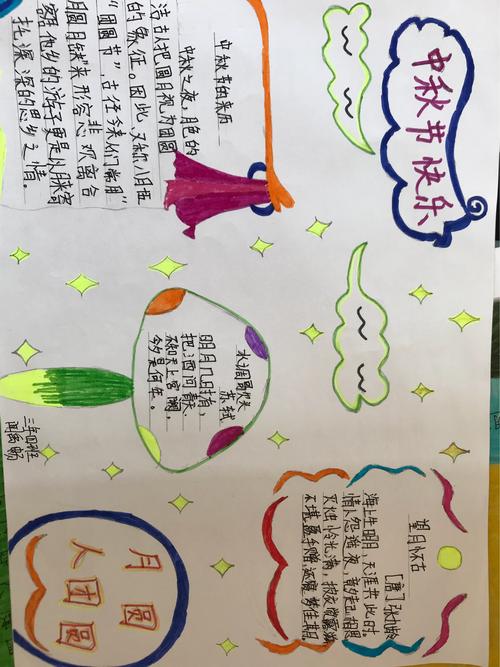 中秋节快乐
中秋节的来历
中秋之夜,月色的
洁古把圆月视为团圆
的象征。因此,又称八月西
"团圆节",古仔今来人们常用"
月圆月缺"来形容悲欢离合
他乡的游子更是以月来寄
托深深的思乡之情。
水调歌头
苏轼
明月几时有,
把酒问青天
不知天上宫阙,
今夕是何年。
望月怀古
[唐]张九龄
海上生明月,天涯共此时
情人怨遥夜,竟夕起相思
灭烛怜光满,披衣觉露滋
不堪盈手赠,还寝梦佳期
月圆
人团圆
三年四班